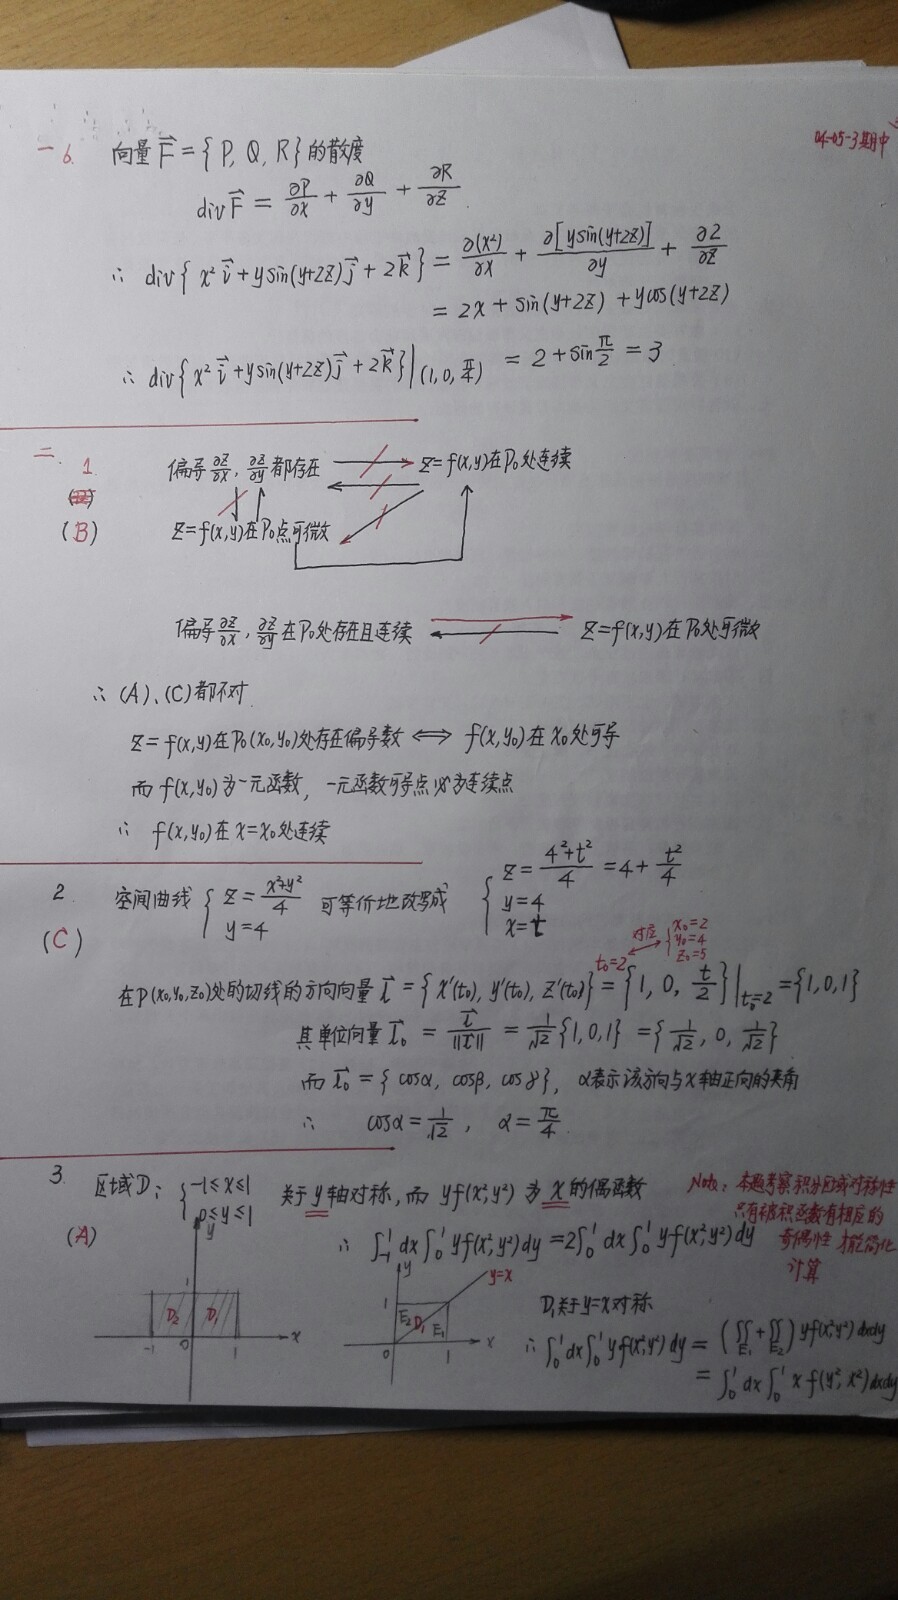 04-05-3期中
一 6. 向量 F⃗ = { P, Q, R } 的散度
div F⃗ = ∂P/∂x + ∂Q/∂y + ∂R/∂z
∴ div{ x² i⃗ + ysin(y+2z) j⃗ + 2k⃗ } = ∂(x²)/∂x + ∂[ysin(y+2z)]/∂y + ∂2/∂z
= 2x + sin(y+2z) + ycos(y+2z)
∴ div{ x² i⃗ + ysin(y+2z) j⃗ + 2k⃗ }|(1, 0, π/4) = 2 + sin π/2 = 3
二. 1. 偏导 ∂z/∂x, ∂z/∂y 都存在 z=f(x,y)在P₀处连续
(B) z=f(x,y)在P₀点可微
偏导 ∂z/∂x, ∂z/∂y 在P₀处存在且连续 z=f(x,y)在P₀处可微
∴ (A)、(C)都不对.
z=f(x,y)在P₀(x₀,y₀)处存在偏导数 ⟺ f(x,y₀)在x₀处可导
而 f(x,y₀)为一元函数, 一元函数可导点必为连续点
∴ f(x,y₀)在x=x₀处连续
2. 空间曲线 { z = x²+y²/4 y=4 可等价地改写成 { z = 4²+t²/4 = 4 + t²/4 y=4 x=t
(C)
t₀=2 对应 { x₀=2 y₀=4 z₀=5
在P(x₀,y₀,z₀)处的切线的方向向量 l⃗ = { x'(t₀), y'(t₀), z'(t₀) } = { 1, 0, t/2 }|t₀=2 = {1,0,1}
其单位向量 l⃗₀ = l⃗/||l⃗|| = 1/√2 {1,0,1} = { 1/√2, 0, 1/√2 }
而 l⃗₀ = { cosα, cosβ, cosγ }, α表示该方向与x轴正向的夹角
∴ cosα = 1/√2, α = π/4.
3. 区域D: { -1≤x≤1 0≤y≤1 关于y轴对称, 而 yf(x²,y²) 为 x 的偶函数
(A)
∴ ∫₋₁¹dx∫₀¹yf(x²,y²)dy = 2∫₀¹dx∫₀¹yf(x²,y²)dy
Note: 本题考察积分区域对称性
只有被积函数有相应的
奇偶性 才能简化
计算
y 1 D₂ D₁ -1 0 1 x
y y=x 1 E₂ D₁ E₁ 0 1 x
D₁关于y=x对称
∴ ∫₀¹dx∫₀¹yf(x²,y²)dy = (∬E₁ + ∬E₂) yf(x²,y²)dxdy
= ∫₀¹dx∫₀¹xf(y²,x²)dxdy